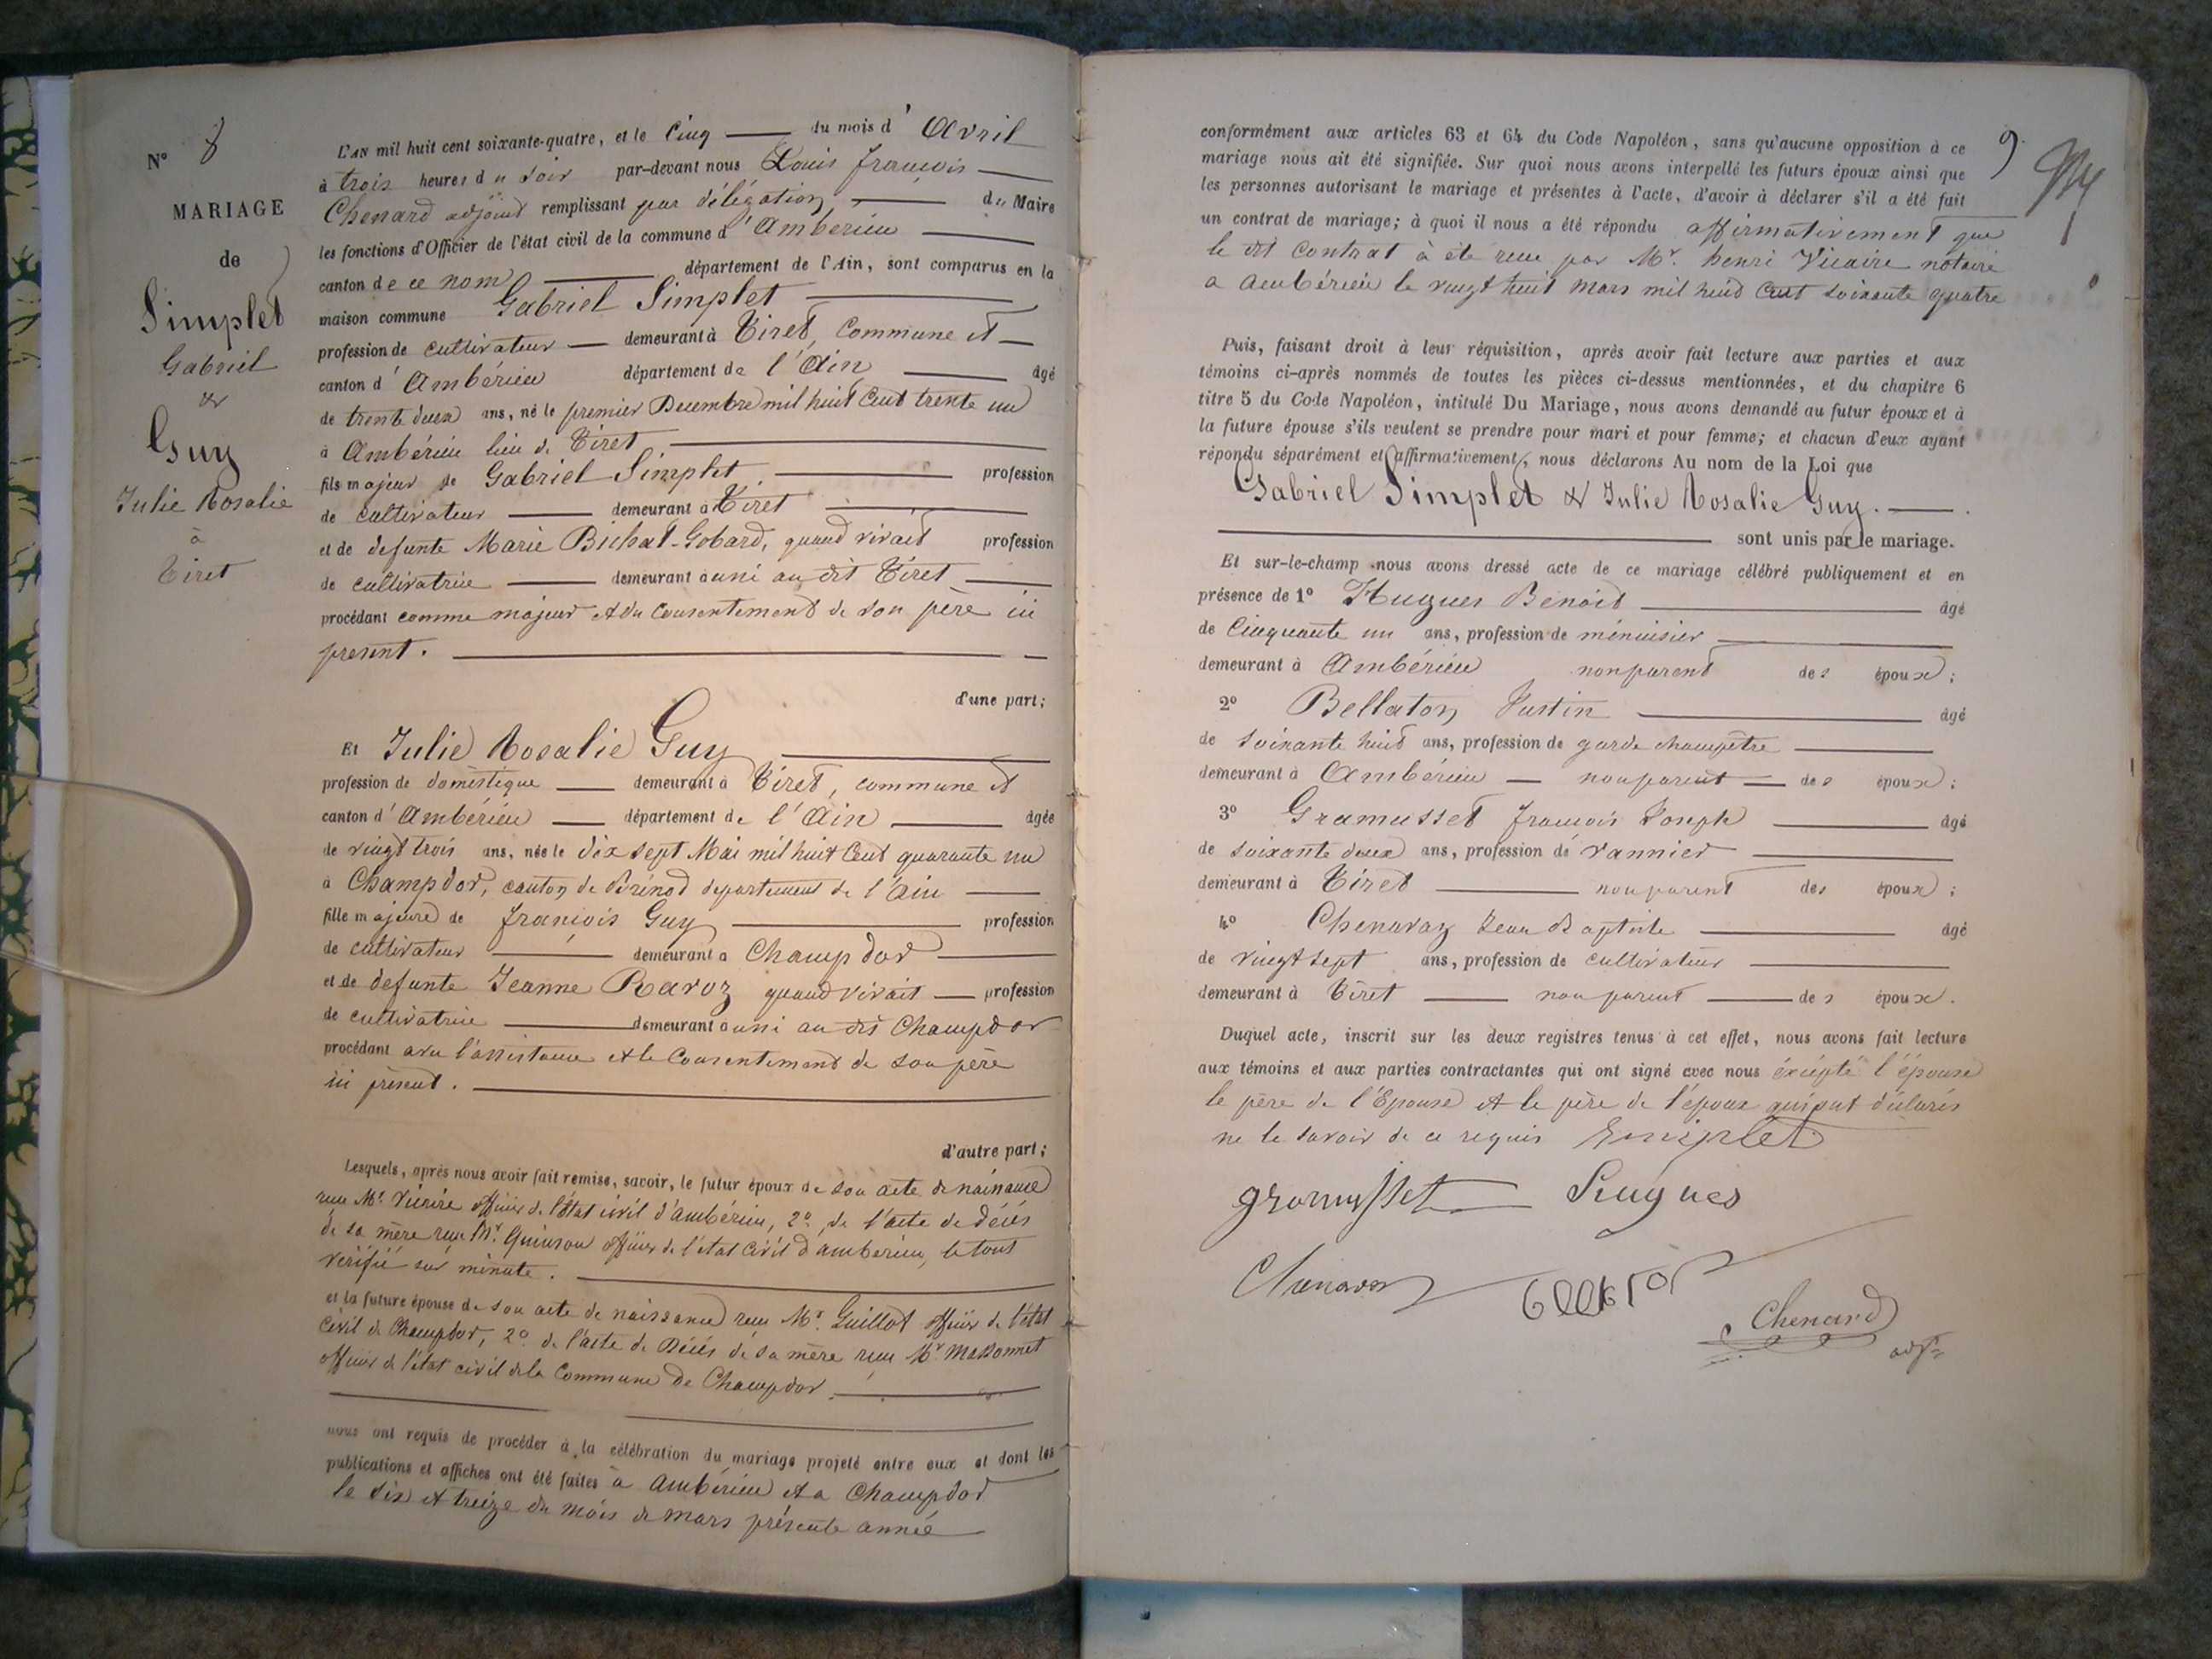 N° 8
MARIAGE
de
Simplet
Gabriel
&
Guy
Julie Rosalie
à
Tiret
L'AN mil huit cent soixante-quatre, et le Cinq du mois d'Avril
à trois heures du soir par-devant nous Louis françois
Chenard adjoint remplissant par délégation du Maire
les fonctions d'Officier de l'état civil de la commune d'Ambérieu
canton de ce nom département de l'Ain, sont comparus en la
maison commune Gabriel Simplet
profession de cultivateur demeurant à Tiret, Commune et
canton d'Ambérieu département de l'Ain âgé
de trente deux ans, né le premier Decembre mil huit Cent trente un
à Ambérieu lieu de Tiret
fils majeur de Gabriel Simplet profession
de cultivateur demeurant à Tiret
et de defunte Marie Bichat-Gobard, quand vivait profession
de cultivatrice demeurant aussi au dit Tiret
procédant comme majeur et du Consentement de son père ici
present.
d'une part;
Et Julie Rosalie Guy
profession de domestique demeurant à Tiret, commune et
canton d'Ambérieu département de l'Ain âgée
de vingt trois ans, née le dix sept Mai mil huit Cent quarante un
à Champdor, canton de Brénod departement de l'Ain
fille majeure de françois Guy profession
de cultivateur demeurant à Champdor
et de defunte Jeanne Ravoz quand vivait profession
de cultivatrice demeurant aussi au dit Champdor
procédant avec l'assistance et le Consentement de son père
ici présent.
d'autre part;
Lesquels, après nous avoir fait remise, savoir, le futur époux de son acte de naissance
reçu Mr. Vicaire officier de l'état civil d'ambérieu, 2° de l'acte de décès
de sa mère reçu Mr. Quinson officier de l'état civil d'ambérieu, le tout
vérifié sur minute.
et la future épouse de son acte de naissance reçu Mr. Guillot officier de l'état
civil de Champdor, 2° de l'acte de Décès de sa mère reçu Mr Massonnet
officier de l'état civil de la Commune de Champdor.
nous ont requis de procéder à la célébration du mariage projeté entre eux et dont les
publications et affiches ont été faites à Ambérieu et a Champdor
le six et treize du mois de mars présente année
9
conformément aux articles 63 et 64 du Code Napoléon, sans qu'aucune opposition à ce
mariage nous ait été signifiée. Sur quoi nous avons interpellé les futurs époux ainsi que
les personnes autorisant le mariage et présentes à l'acte, d'avoir à déclarer s'il a été fait
un contrat de mariage; à quoi il nous a été répondu affirmativement que
le dit Contrat à été reçu par Mr. henri Vicaire notaire
a Ambérieu le vingt huit mars mil huit Cent soixante quatre
Puis, faisant droit à leur réquisition, après avoir fait lecture aux parties et aux
témoins ci-après nommés de toutes les pièces ci-dessus mentionnées, et du chapitre 6
titre 5 du Code Napoléon, intitulé Du Mariage, nous avons demandé au futur époux et à
la future épouse s'ils veulent se prendre pour mari et pour femme; et chacun d'eux ayant
répondu séparément et affirmativement, nous déclarons Au nom de la Loi que
Gabriel Simplet & Julie Rosalie Guy.
sont unis par le mariage.
Et sur-le-champ nous avons dressé acte de ce mariage célébré publiquement et en
présence de 1° Hugues Benoit âgé
de Cinquante un ans, profession de ménuisier
demeurant à Ambérieu non parent des époux;
2° Bellaton Justin âgé
de soixante huit ans, profession de garde champêtre
demeurant à Ambérieu non parent des époux;
3° Gramusset françois Joseph âgé
de soixante deux ans, profession de vannier
demeurant à Tiret non parent des époux;
4° Chenavaz Jean Baptiste âgé
de vingt sept ans, profession de cultivateur
demeurant à Tiret non parent des époux.
Duquel acte, inscrit sur les deux registres tenus à cet effet, nous avons fait lecture
aux témoins et aux parties contractantes qui ont signé avec nous éxcépté l'épouse
le père de l'Epouse et le père de l'époux qui ont déclarés
ne le savoir de ce requis Simplet
gramusset Hugues
Chenavaz
Chenard
adj.